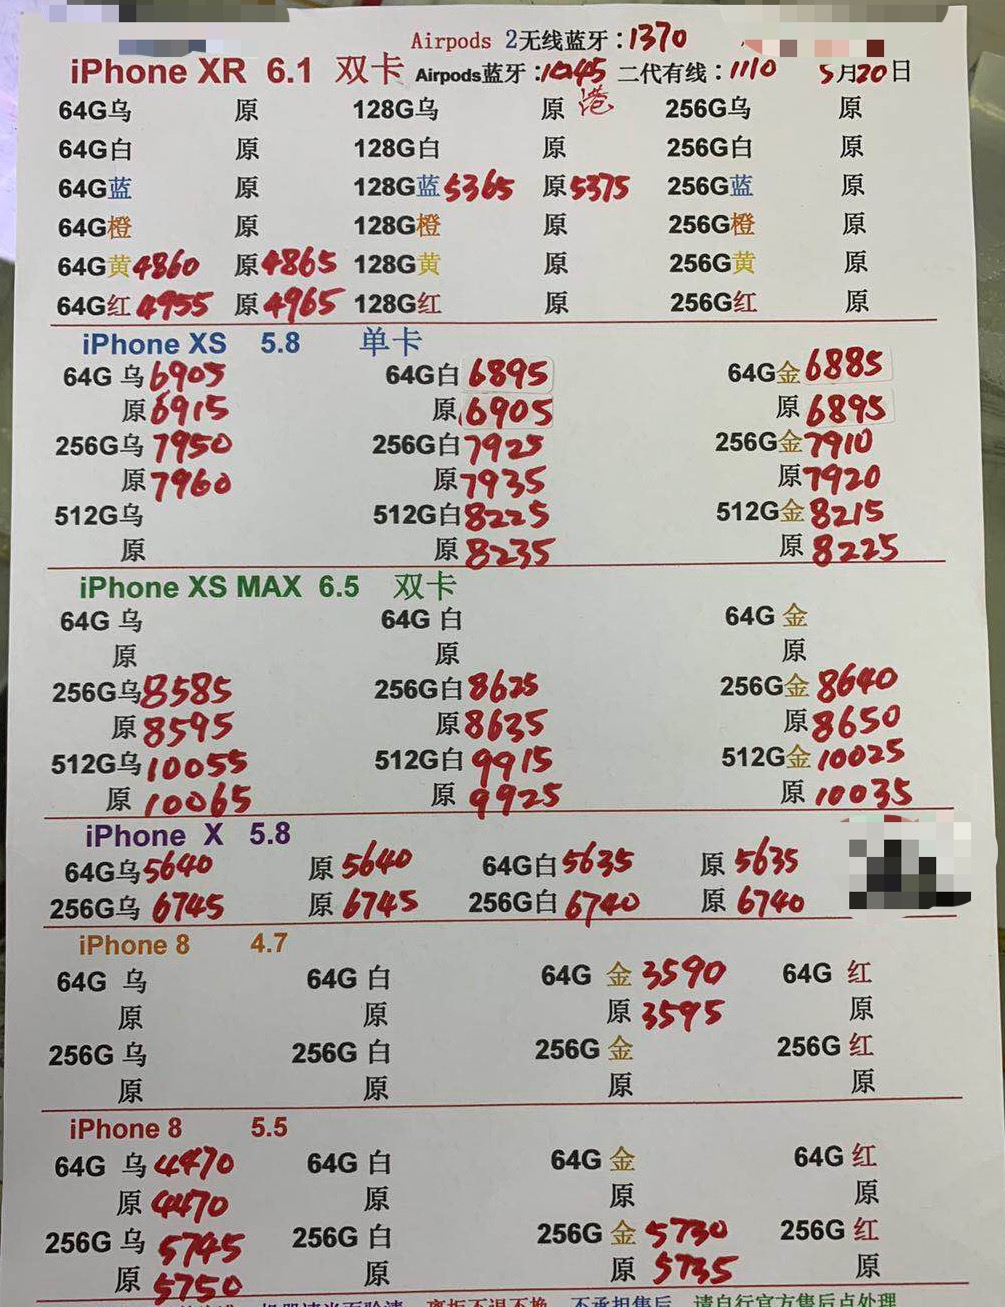 Airpods 2无线蓝牙:1370
iPhone XR 6.1 双卡 Airpods蓝牙:1045 二代有线:1110 5月20日
64G乌 原 128G乌 原 港 256G乌 原
64G白 原 128G白 原 256G白 原
64G蓝 原 128G蓝5365 原5375 256G蓝 原
64G橙 原 128G橙 原 256G橙 原
64G黄4860 原4865 128G黄 原 256G黄 原
64G红4955 原4965 128G红 原 256G红 原
iPhone XS 5.8 单卡
64G 乌6905 64G白6895 64G金6885
原6915 原6905 原6895
256G乌7950 256G白7925 256G金7910
原7960 原7935 原7920
512G乌 512G白8225 512G金8215
原 原8235 原8225
iPhone XS MAX 6.5 双卡
64G 乌 64G 白 64G 金
原 原 原
256G乌8585 256G白8625 256G金8640
原8595 原8635 原8650
512G乌10055 512G白9915 512G金10025
原10065 原9925 原10035
iPhone X 5.8
64G乌5640 原5640 64G白5635 原5635
256G乌6745 原6745 256G白6740 原6740
iPhone 8 4.7
64G 乌 64G 白 64G 金3590 64G 红
原 原 原3595 原
256G 乌 256G 白 256G 金 256G 红
原 原 原 原
iPhone 8 5.5
64G 乌4470 64G 白 64G 金 64G 红
原4470 原 原 原
256G 乌5745 256G 白 256G 金5730 256G 红
原5750 原 原5735 原
机器请当面验清 离柜不退不换 不承担售后 请自行官方售后点处理